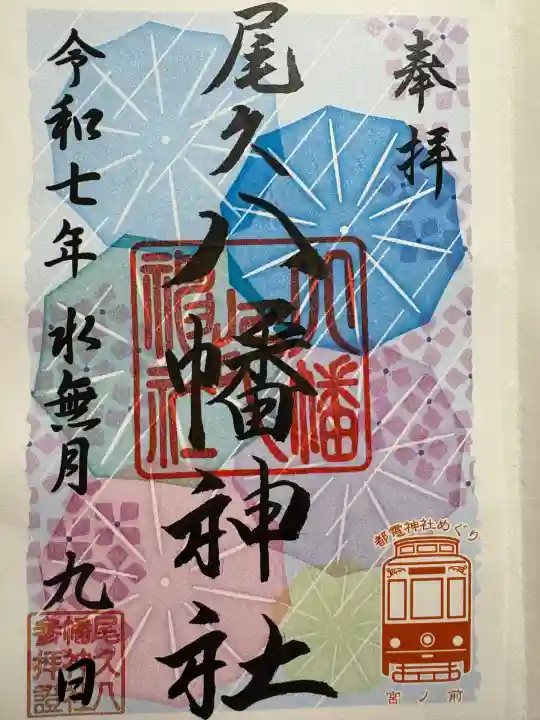 奉拝
尾久八幡神社
令和七年 水無月 九日
都電神社めぐり
宮ノ前
尾久八
幡神社
参拝證